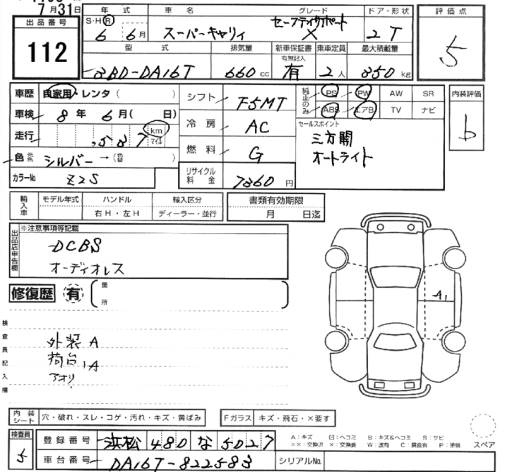 7月31日
出品番号
112
年式 車名 グレード ドア・形状
S・H・R 6 6月 スーパーキャリィ セーフティサポート X 2 T
型式 排気量 新車保証書 乗車定員 最大積載量
3BD-DA16T 660cc 有 2人 350kg
評価点
5
車歴 自家用・レンタ( )
車検 8年 6月( 日)
走行 ,587 km マイル
色 シルバー→( )
カラーNo. Z2S
シフト F5MT
冷房 AC
燃料 G
リサイクル料金 7860円
純正のみ PS PW AW SR
ABS エアB TV ナビ
内装評価
b
セールスポイント
三方開
オートライト
輸入車 モデル年式 ハンドル 輸入区分
右H・左H ディーラー・並行
書類有効期限
月 日迄
出品店申告欄
※注意事項等記載
DCBS
オーディオレス
修復歴 有 箇所
検査員記入欄
外装A
荷台 ,A
アオリ
A1
内装シート 穴・破れ・スレ・コゲ・汚れ・キズ・黄ばみ
Fガラス キズ・飛石・×要す
検査員 5
登録番号 浜松480な5027
車台番号 DA16T-822583
シリアルNo.
A:キズ U:ヘコミ B:キズ&ヘコミ S:サビ
スペア